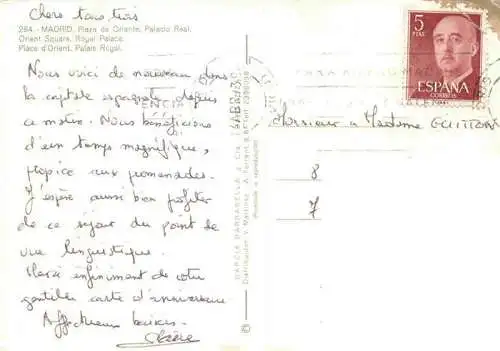 Chers tous trois
284.-MADRID. Plaza de Oriente. Palacio Real.
Orient Square. Royal Palace.
Place d'Orient. Palais Royal.
Nous voici de nouveau dans
la capitale espagnole depuis
ce matin. Nous bénéficions
d'un temps magnifique,
propice aux promenades.
J'espère aussi bien profiter
de ce séjour du point de
vue linguistique.
Merci infiniment de votre
gentille carte d'anniversaire
Affectueux baisers.
Claire
GARCIA GARRABELLA y Cia.
Prohibida la reproducción
©
5
PTAS
ESPAÑA
CORREOS
Monsieur & Madame GUITTON
8
7